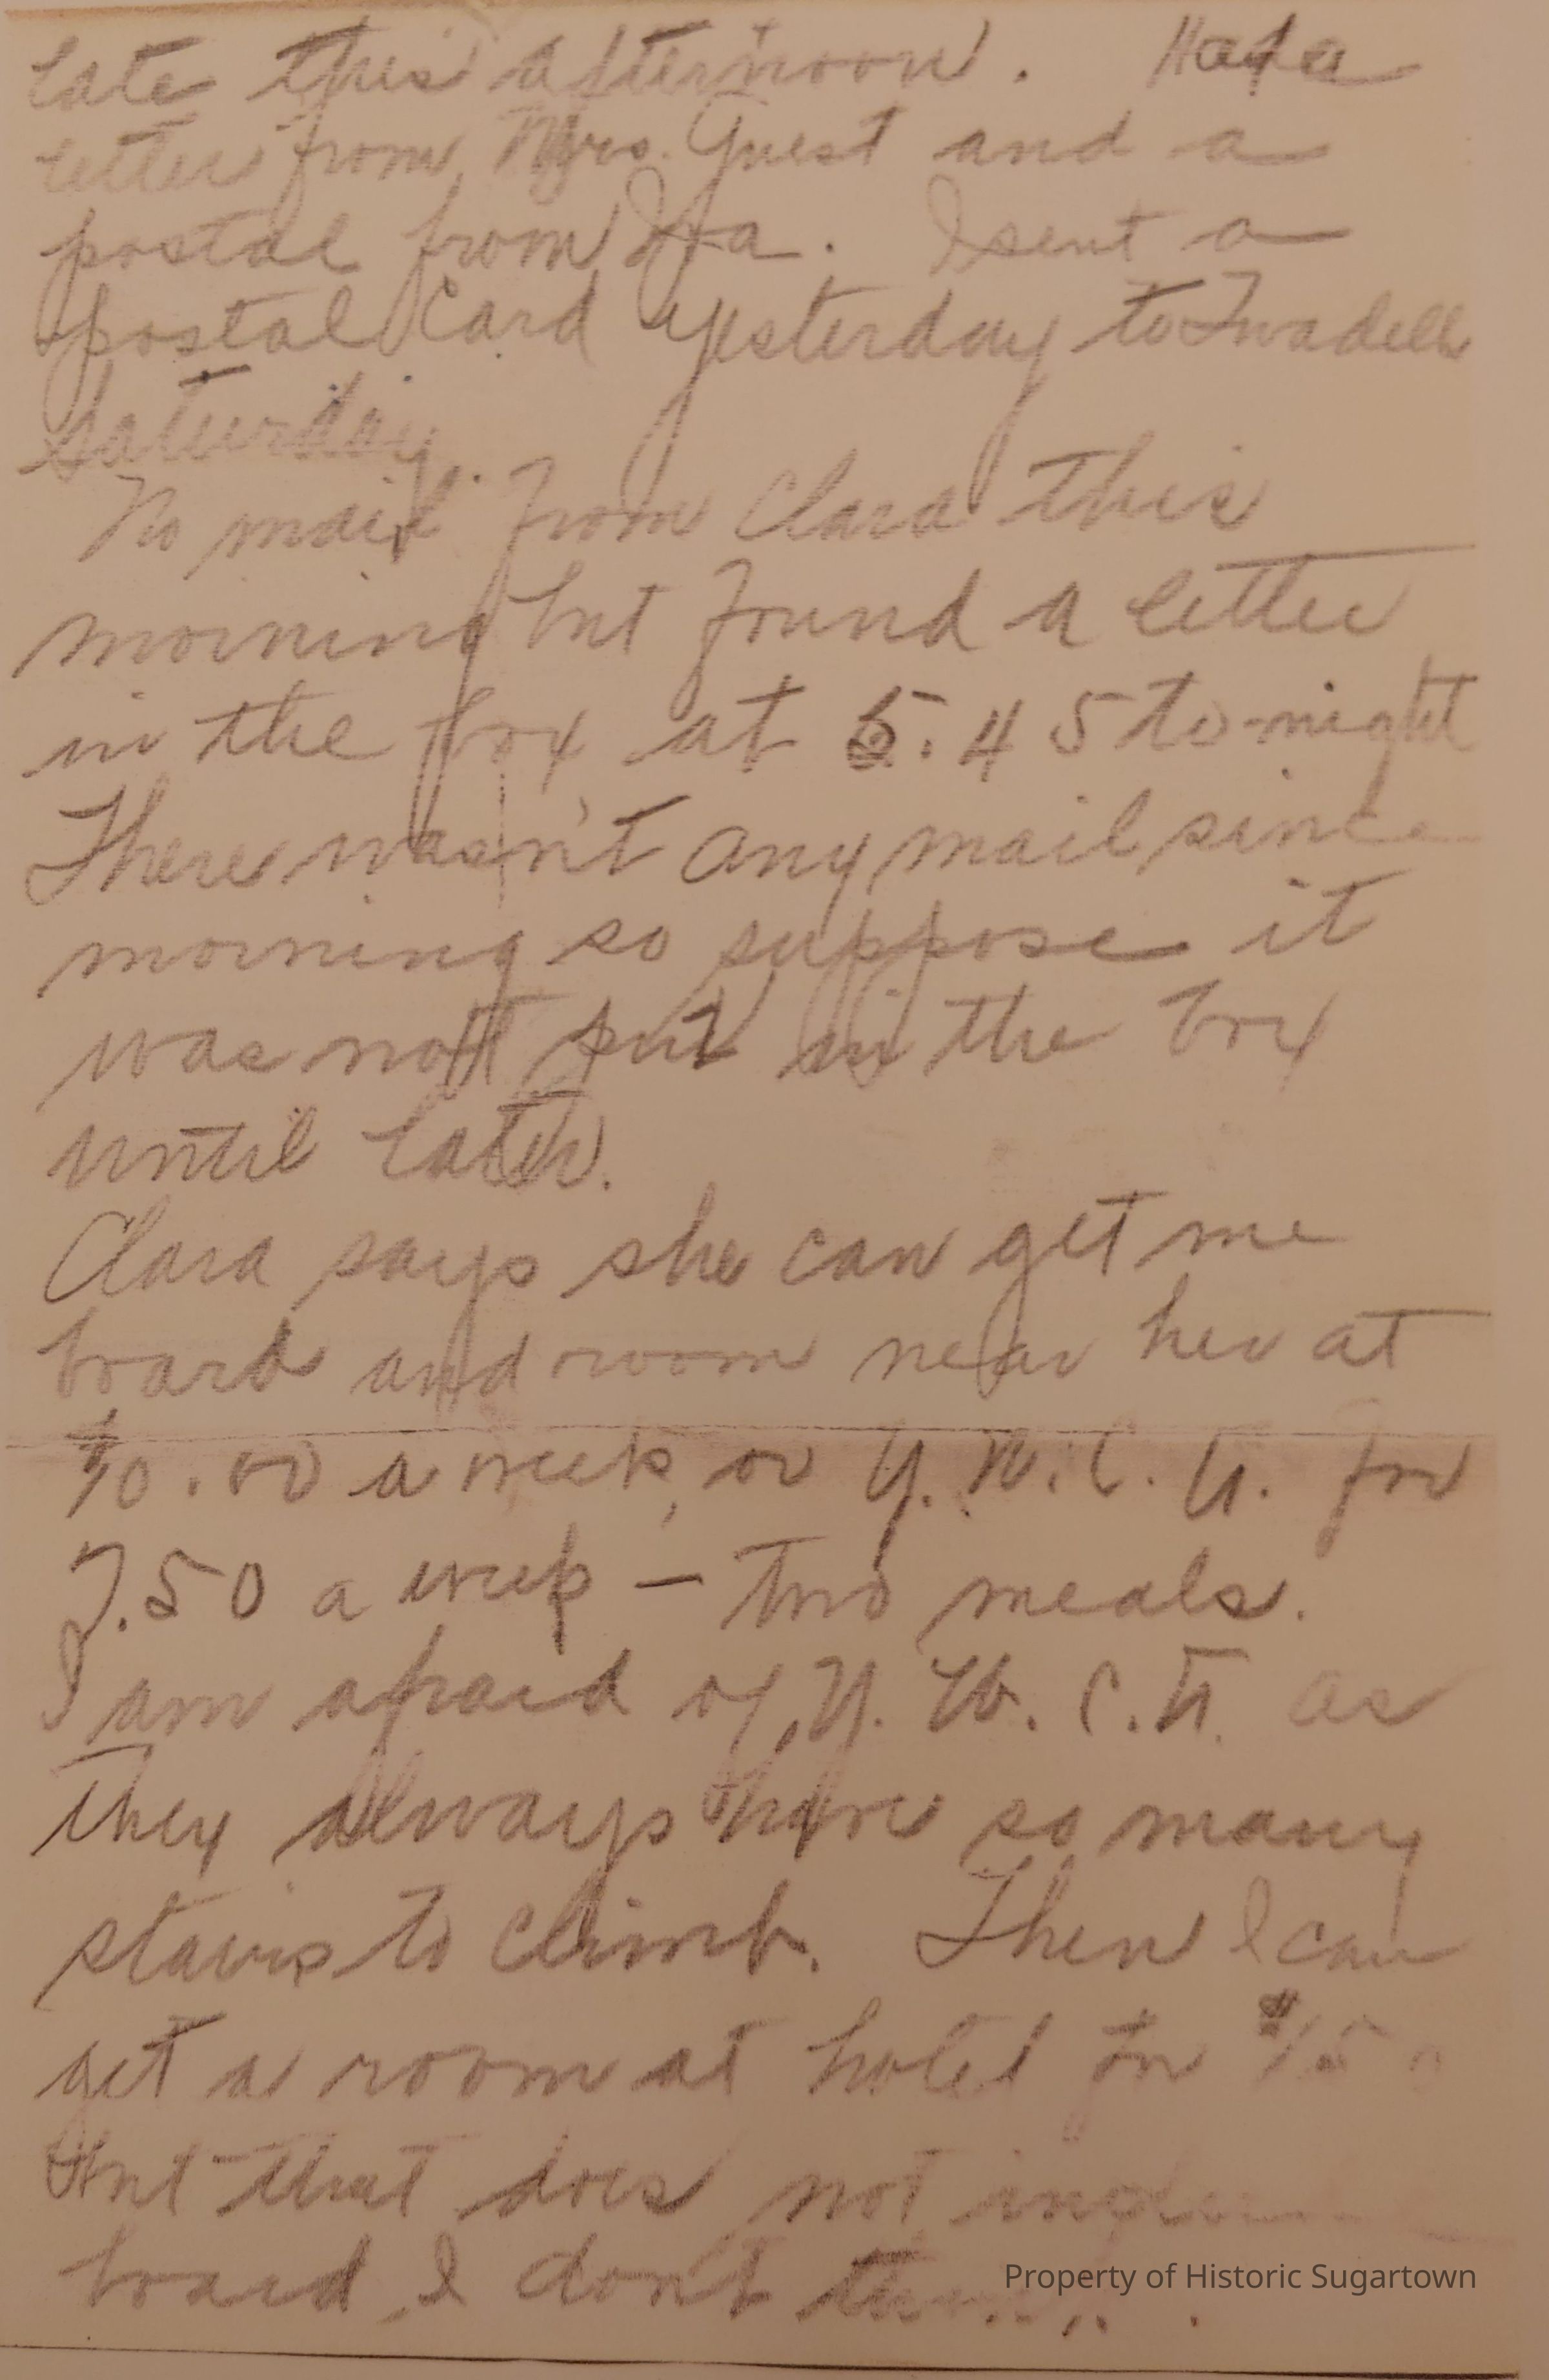 late this afternoon. Had a
letter from Mrs. Guest and a
postal from Ida. I sent a
postal card yesterday to Twadell
Saturday.
No mail from Clara this
morning but found a letter
in the box at 5.45 to-night
There wasn't any mail since
morning so suppose it
was not put in the box
until later.
Clara says she can get me
board and room near her at
$10.00 a week, or Y.W.C.A. for
7.50 a week — two meals.
I am afraid of Y.W.C.A. as
they always have so many
stairs to climb. Then I can
get a room at hotel for $150
but that does not include
board, I don't think.
Property of Historic Sugartown